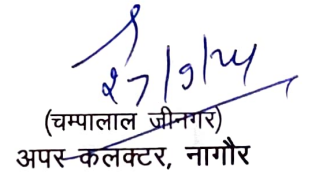 27/9/24
(चम्पालाल जीनगर)
अपर कलक्टर, नागौर